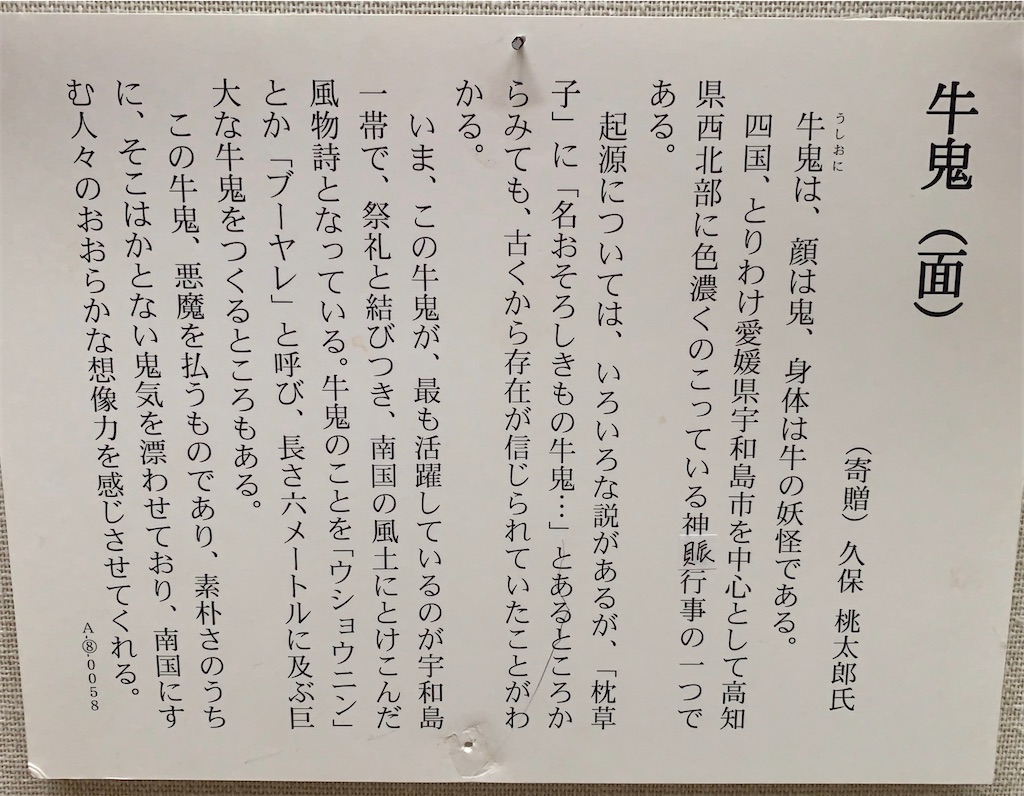 牛鬼（面）
（寄贈）久保 桃太郎氏
うしおに
牛鬼は、顔は鬼、身体は牛の妖怪である。
四国、とりわけ愛媛県宇和島市を中心として高知
県西北部に色濃くのこっている神賑行事の一つで
ある。
起源については、いろいろな説があるが、「枕草
子」に「名おそろしきもの牛鬼…」とあるところか
らみても、古くから存在が信じられていたことがわ
かる。
いま、この牛鬼が、最も活躍しているのが宇和島
一帯で、祭礼と結びつき、南国の風土にとけこんだ
風物詩となっている。牛鬼のことを「ウショウニン」
とか「ブーヤレ」と呼び、長さ六メートルに及ぶ巨
大な牛鬼をつくるところもある。
この牛鬼、悪魔を払うものであり、素朴さのうち
に、そこはかとない鬼気を漂わせており、南国にす
む人々のおおらかな想像力を感じさせてくれる。
A.⑧.0058